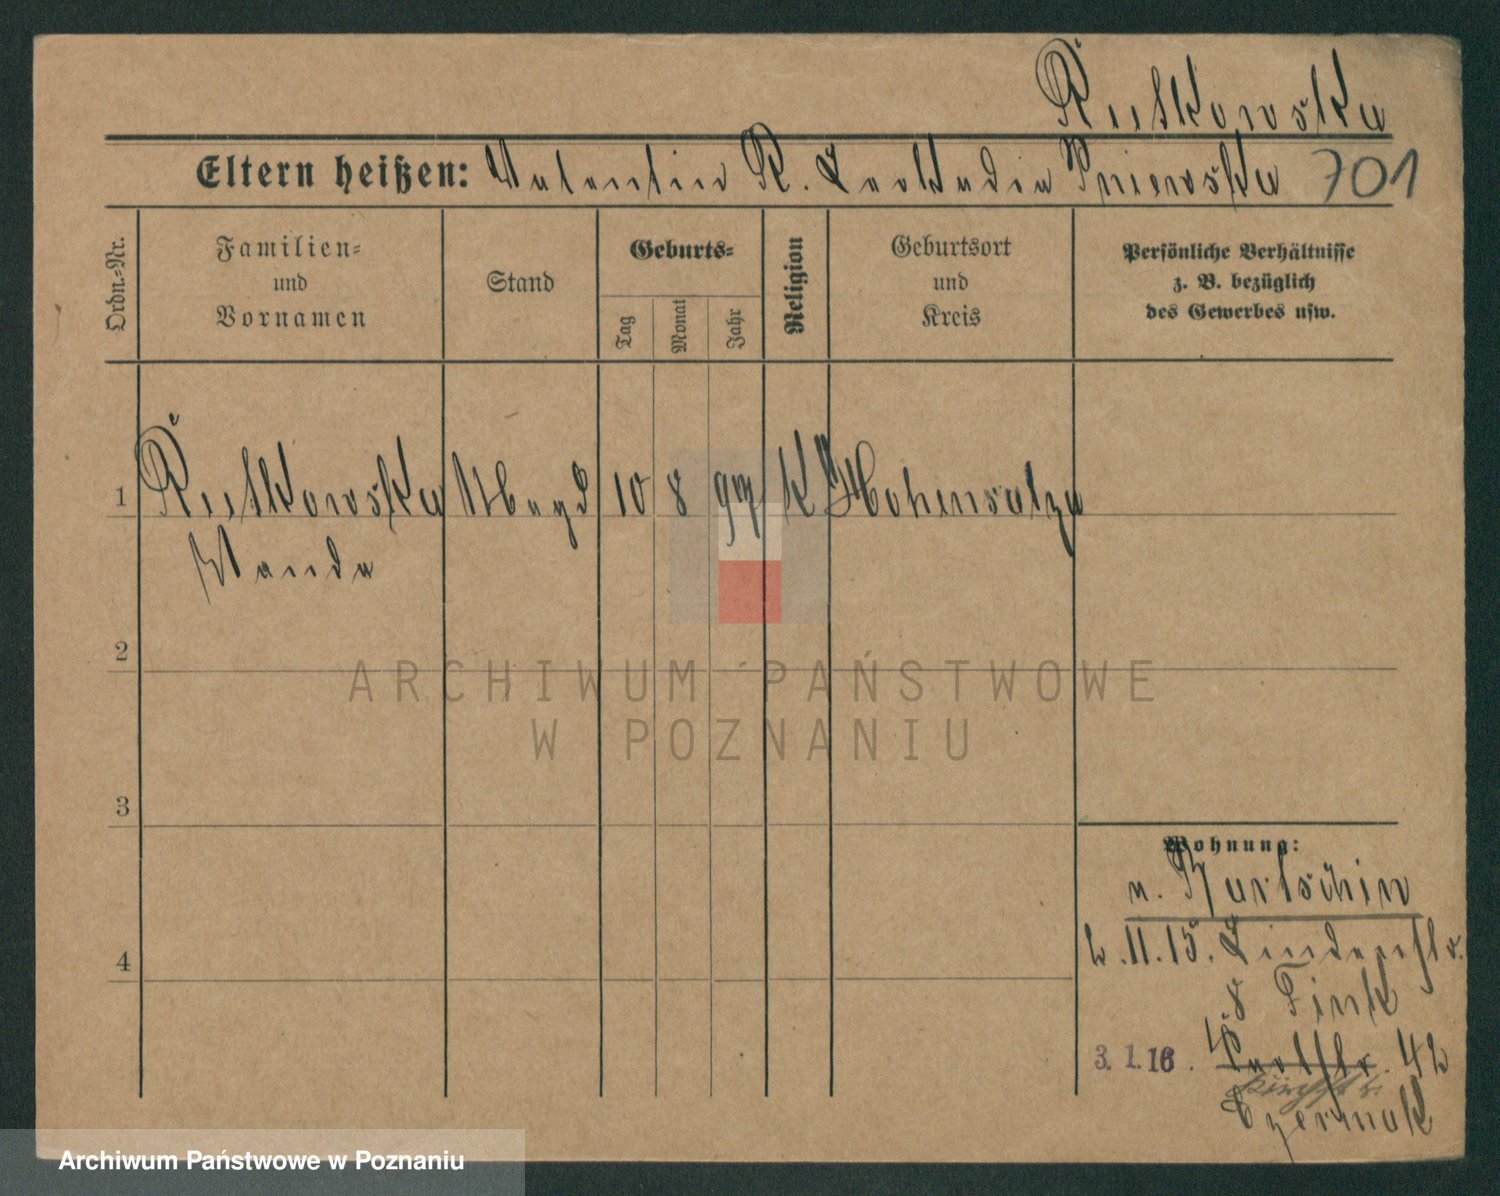 Rutkowska
Eltern heißen: Valentin R. Leokadia Pniewska 701
Ordn.-Nr.
Familien-
und
Vornamen
Stand
Geburts-
Tag
Monat
Jahr
Religion
Geburtsort
und
Kreis
Persönliche Verhältnisse
z. B. bezüglich
des Gewerbes usw.
1 Rutkowska Magd 10 8 97 K Hohensalza
Wanda
2
ARCHIWUM PAŃSTWOWE
W POZNANIU
3
Wohnung:
n. Bartschin
2.11.15. Lindenstr.
8 Fink
3.1.16. 42
Czermak
4
Archiwum Państwowe w Poznaniu